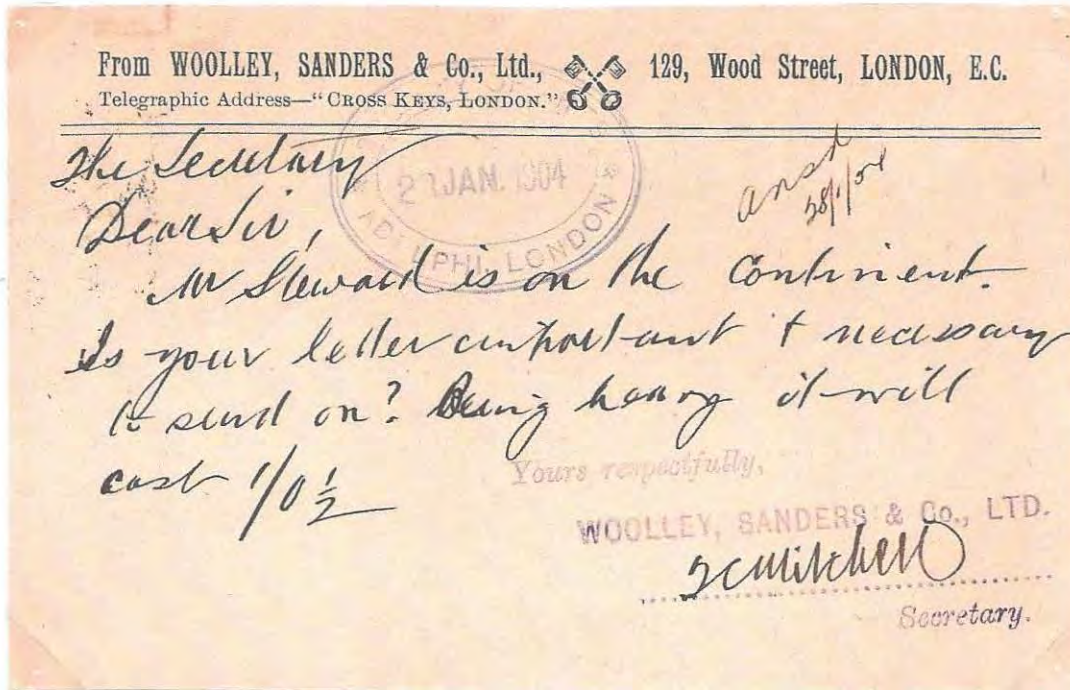 From WOOLLEY, SANDERS & Co., Ltd., 129, Wood Street, LONDON, E.C.
Telegraphic Address—"CROSS KEYS, LONDON."
The Secretary
ansd
28/1/04
Dear Sir,
JAN. 1904
ADELPHI, LONDON
Mr Steward is on the Continent.
Is your letter important & necessary
to send on? Being heavy it will
cost 1/0 ½
Yours respectfully,
WOOLLEY, SANDERS & Co., LTD.
Mitchell
Secretary.